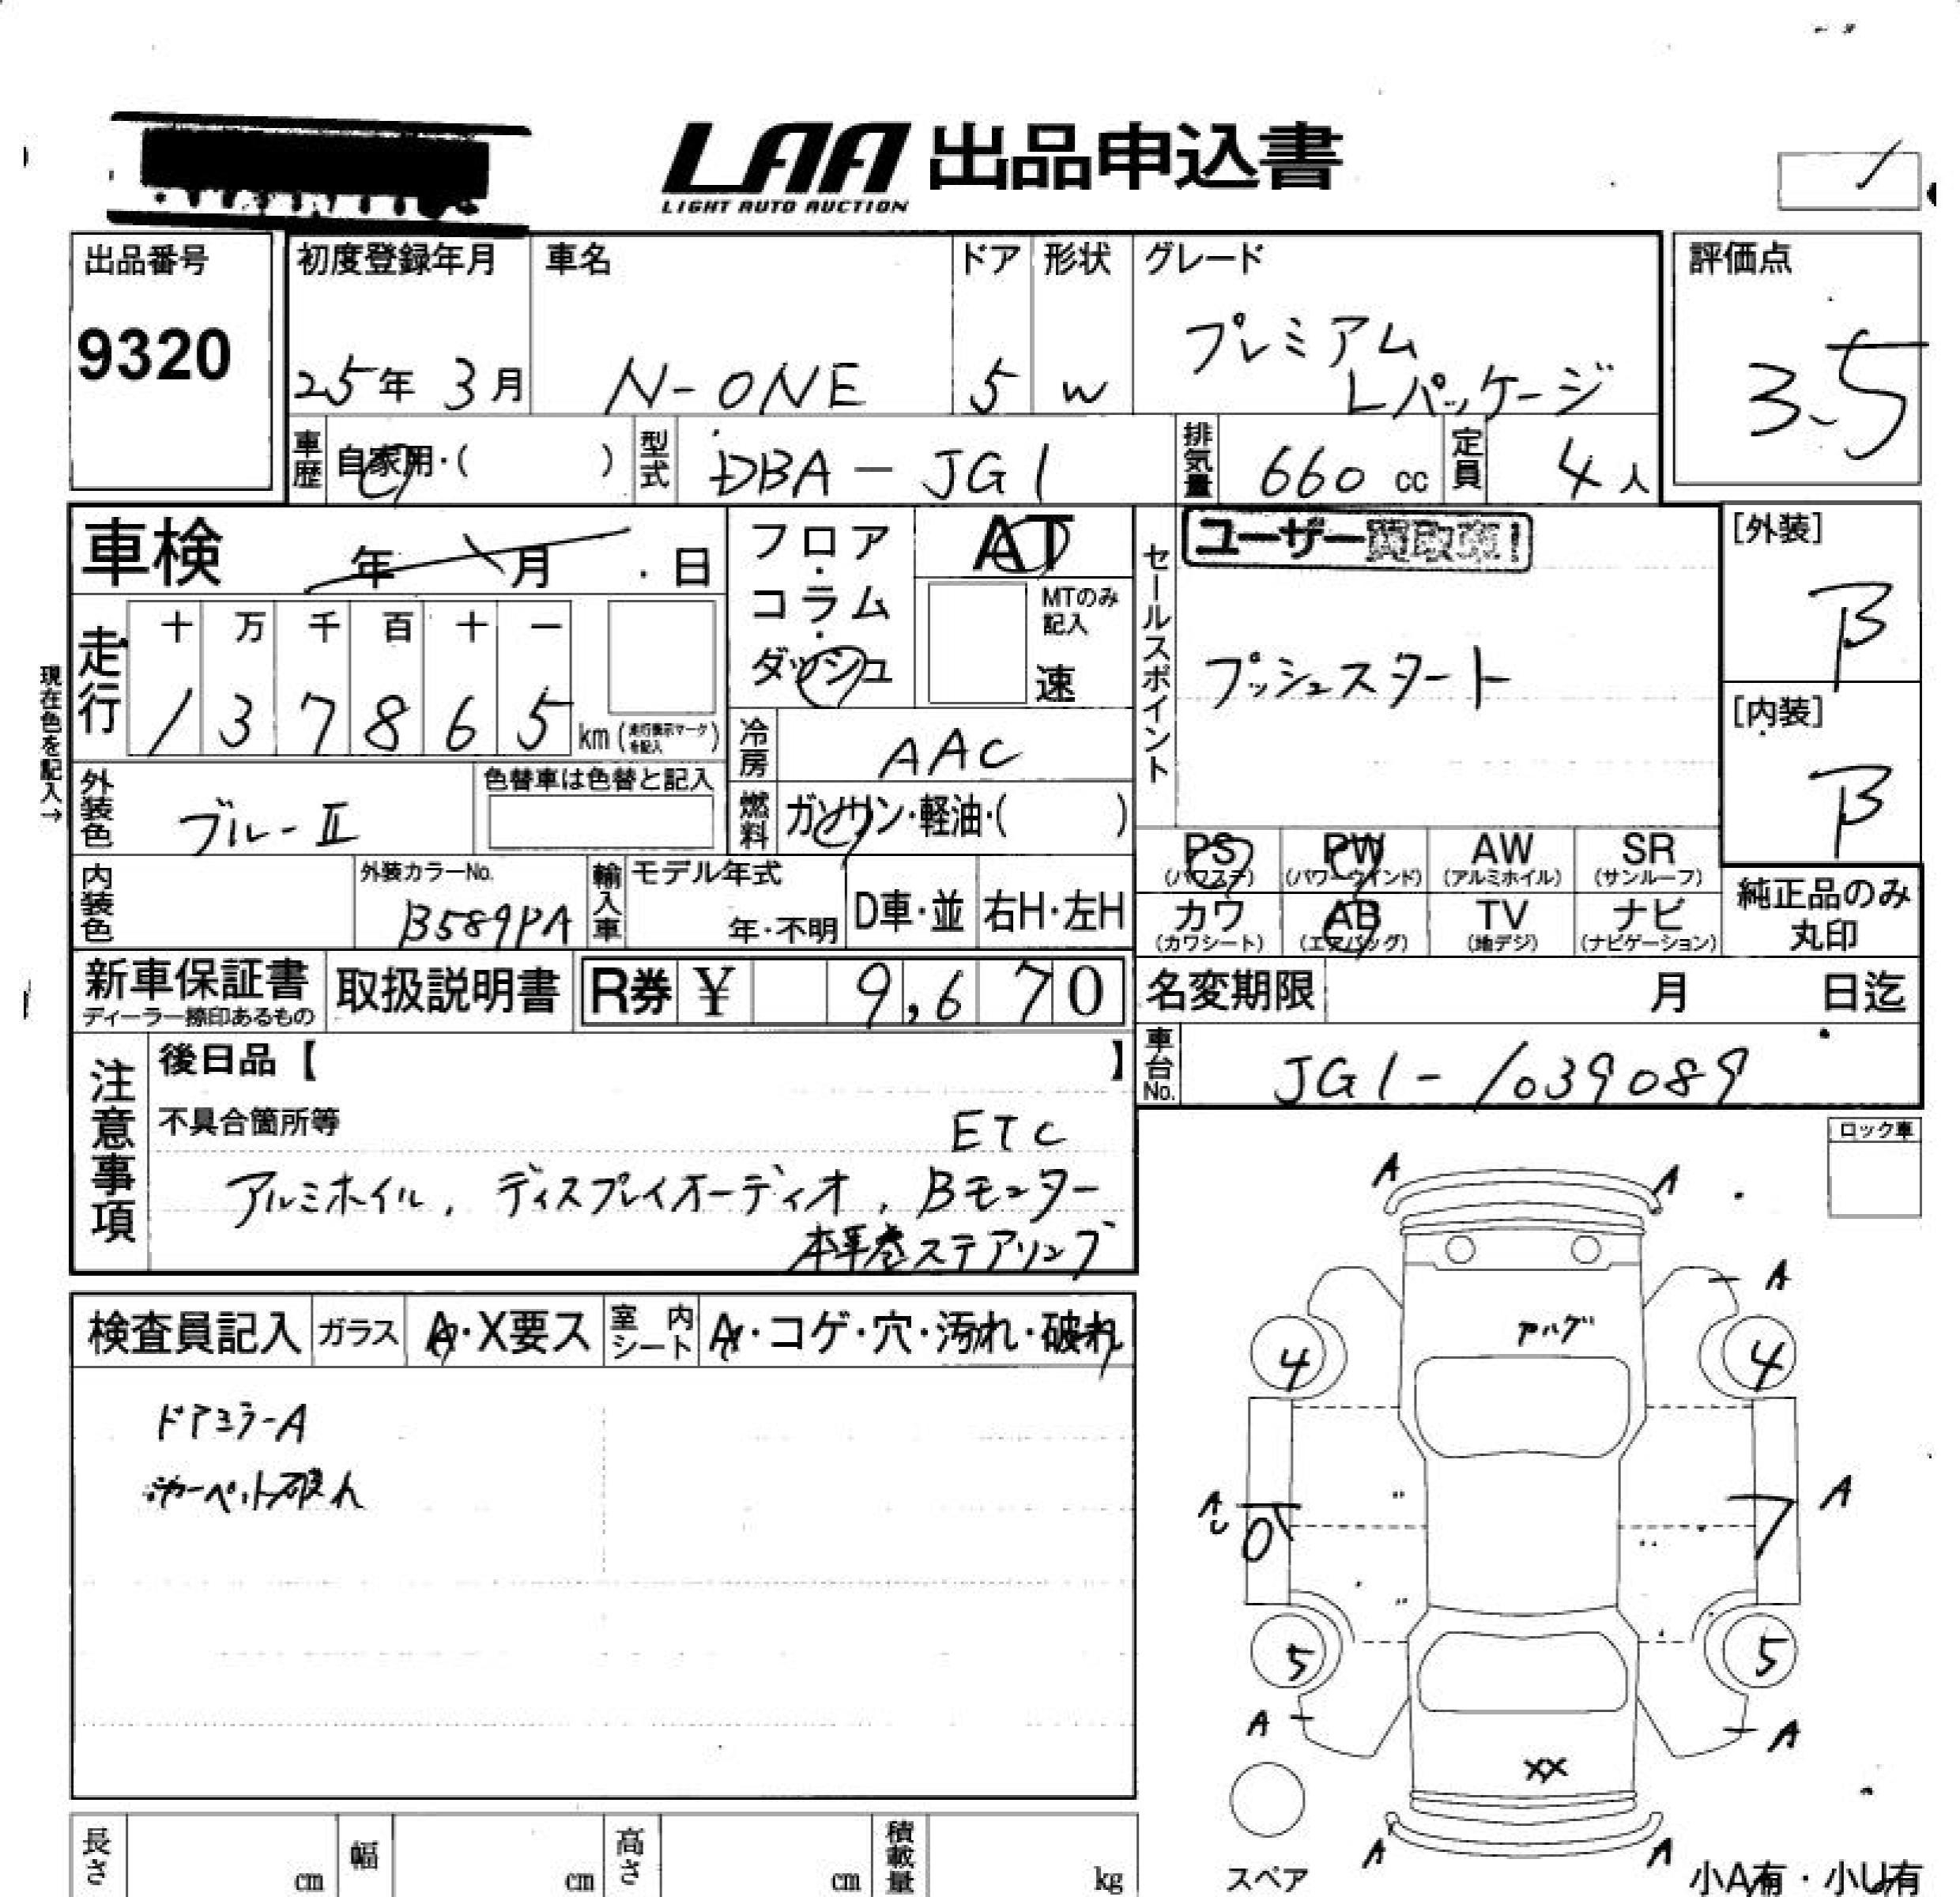 LAA 出品申込書
LIGHT AUTO AUCTION
出品番号
9320
初度登録年月
25年 3月
車名
N-ONE
ドア
5
形状
W
グレード
プレミアム
Lパッケージ
評価点
3.5
車歴
自家用・( )
型式
DBA-JG1
排気量
660 cc
定員
4人
車検 年 月 日
フロア・コラム・ダッシュ
AT
MTのみ記入
速
セールスポイント
ユーザー買取車!
プッシュスタート
[外装]
B
[内装]
B
現在色を記入→
走行
十 万 千 百 十 一
1 3 7 8 6 5 km (走行表示マークを記入)
冷房
AAC
外装色
ブルーII
色替車は色替と記入
燃料
ガソリン・軽油・( )
内装色
外装カラーNo.
B589PA
輸入車
モデル年式
年・不明
D車・並
右H・左H
PS (パワステ)
PW (パワーウインド)
AW (アルミホイル)
SR (サンルーフ)
カワ (カワシート)
AB (エアバッグ)
TV (地デジ)
ナビ (ナビゲーション)
純正品のみ丸印
新車保証書
ディーラー捺印あるもの
取扱説明書
R券 ¥ 9,670
名変期限 月 日迄
車台No.
JG1-1039089
注意事項
後日品【 】
不具合箇所等
ETC
アルミホイル, ディスプレイオーディオ, Bモニター
本革巻ステアリング
ロック車
検査員記入
ガラス
A・X要ス
室内シート
A・コゲ・穴・汚れ・破れ
ドアミラーA
カーペット破れ
A A
A
4 4
A A
5 5
A A
XX
A A
スペア
小A有・小U有
長さ cm
幅 cm
高さ cm
積載量 kg